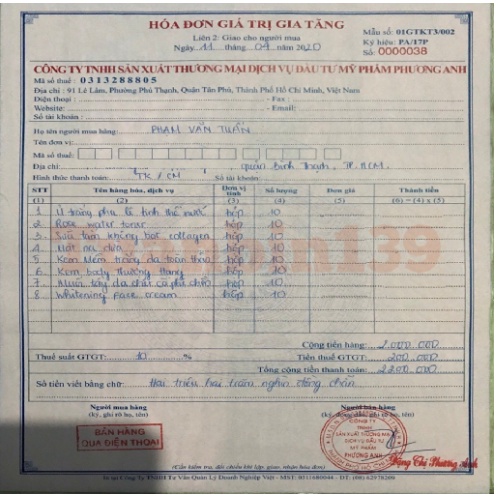 HÓA ĐƠN GIÁ TRỊ GIA TĂNG
Liên 2: Giao cho người mua
Ngày 11 tháng 04 năm 2020
Mẫu số: 01GTKT3/002
Ký hiệu: PA/17P
Số: 0000038
CÔNG TY TNHH SẢN XUẤT THƯƠNG MẠI DỊCH VỤ ĐẦU TƯ MỸ PHẨM PHƯƠNG ANH
Mã số thuế: 0313288805
Địa chỉ: 91 Lê Lâm, Phường Phú Thạnh, Quận Tân Phú, Thành Phố Hồ Chí Minh, Việt Nam
Điện thoại: - Fax:
Website: - Email:
Số tài khoản:
Họ tên người mua hàng: PHẠM VĂN TUẤN
Tên đơn vị:
Mã số thuế:
Địa chỉ: quận Bình Thạnh, TP.HCM
Hình thức thanh toán: TK/CM Số tài khoản:
STT Tên hàng hóa, dịch vụ Đơn vị tính Số lượng Đơn giá Thành tiền
(1) (2) (3) (4) (5) (6) = (4) x (5)
1 Ủ trắng phu lê tinh thể nước hộp 10
2 Rose water toner hộp 10
3 Sữa tắm không bọt collagen hộp 10
4 Mặt nạ dừa hộp 10
5 Kem Mềm trắng da toàn thân hộp 10
6 Kem body thượng hạng hộp 10
7 Muối tẩy da chết cà phê hộp 10
8 Whitening Face cream hộp 10
Cộng tiền hàng: 2.000.000
Thuế suất GTGT: 10 % Tiền thuế GTGT: 200.000
Tổng cộng tiền thanh toán: 2.200.000
Số tiền viết bằng chữ: Hai triệu hai trăm nghìn đồng chẵn
Người mua hàng
(ký, ghi rõ họ, tên)
Người bán hàng
BÁN HÀNG
QUA ĐIỆN THOẠI
CÔNG TY
TNHH
SẢN XUẤT THƯƠNG MẠI
DỊCH VỤ ĐẦU TƯ
MỸ PHẨM
PHƯƠNG ANH
Đặng Chi Phương Anh
(Cần kiểm tra, đối chiếu khi lập, giao, nhận hóa đơn)